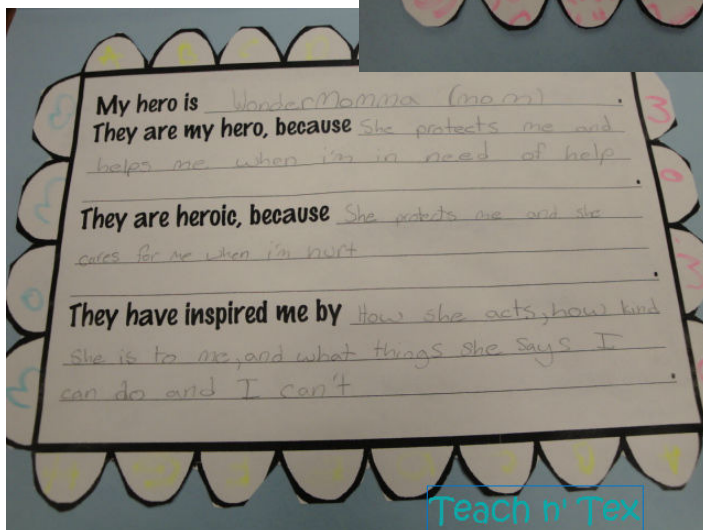 My hero is WonderMomma (mom).
They are my hero, because She protects me and
helps me when i'm in need of help
.
They are heroic, because She protects me and she
cares for me when i'm hurt
.
They have inspired me by How she acts, how kind
she is to me, and what things she says I
can do and I can't.
Teach n' Tex